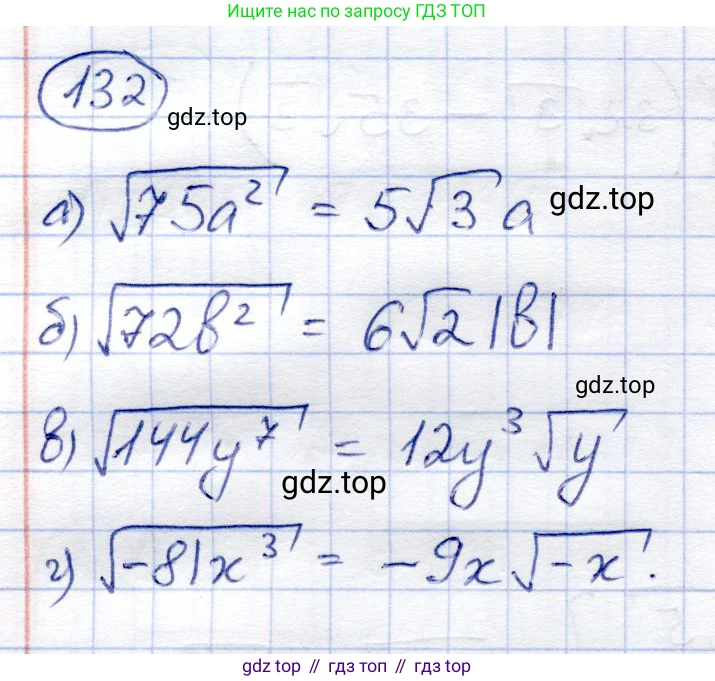 Ищите нас по запросу ГДЗ ТОП
132
gdz.top
а) √75a² = 5√3 a
gdz.top
б) √72b² = 6√2 |b|
gdz.top
в) √144y⁷ = 12y³√y
gdz.top
г) √-81x³ = -9x√-x.
gdz top // гдз топ // гдз.top